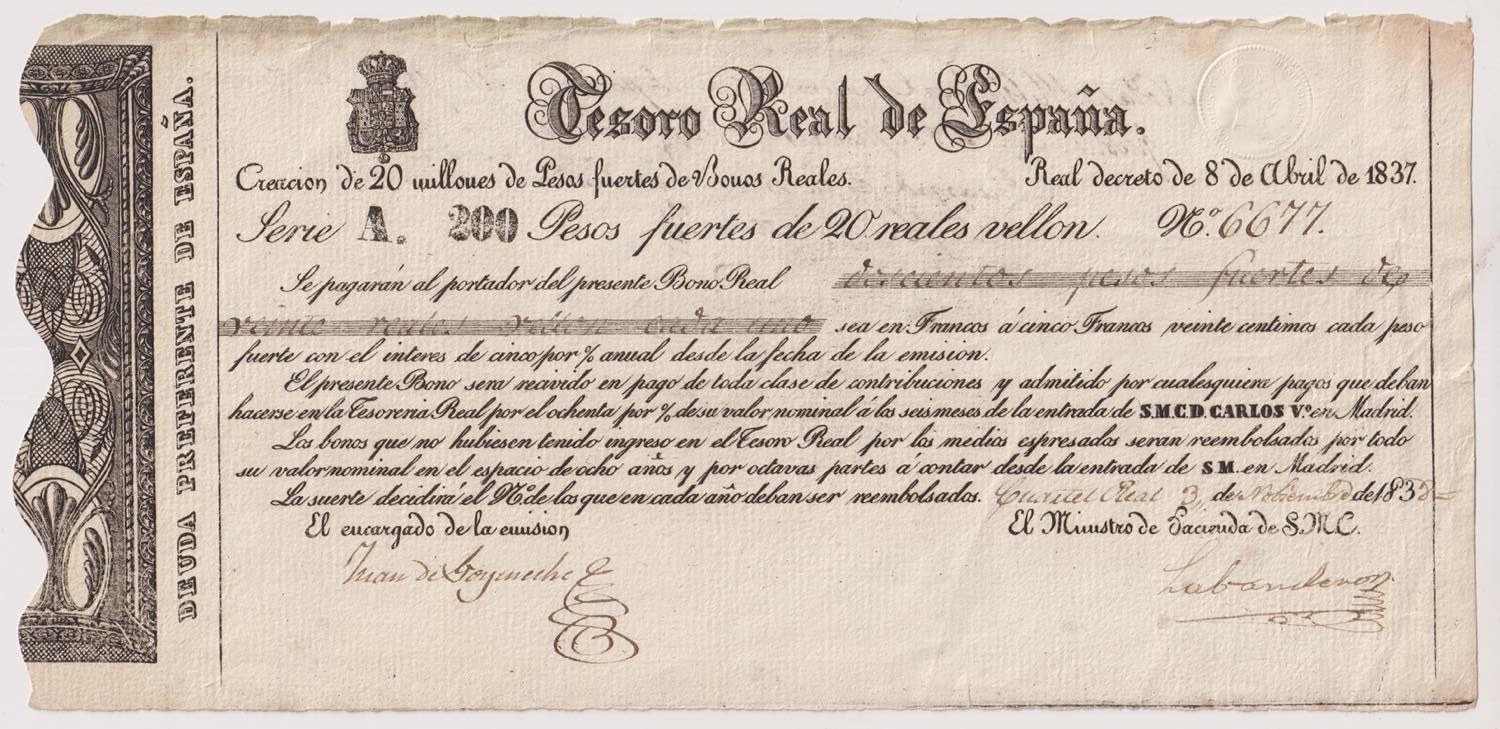 DEUDA PREFERENTE DE ESPAÑA.
Tesoro Real de España.
Creacion de 20 millones de Pesos fuertes de Bonos Reales. Real decreto de 8 de Abril de 1837.
Serie A. 200 Pesos fuertes de 20 reales vellon. Nº. 6677.
Se pagarán al portador del presente Bono Real doscientos pesos fuertes de
veinte reales vellon cada uno sea en Francos á cinco Francos veinte centimos cada peso
fuerte con el interes de cinco por % anual desde la fecha de la emision.
El presente Bono sera recivido en pago de toda clase de contribuciones y admitido por cualesquiera pagos que deban
hacerse en la Tesoreria Real por el ochenta por % de su valor nominal á los seis meses de la entrada de S.M.C.D. CARLOS Vº. en Madrid.
Los bonos que no hubiesen tenido ingreso en el Tesoro Real por los medios espresados seran reembolsados por todo
su valor nominal en el espacio de ocho años y por octavas partes á contar desde la entrada de S M. en Madrid.
La suerte decidirá el Nº. de los que en cada año deban ser reembolsados. Cuartel Real 3 de Noviembre de 1838
El encargado de la emision El Ministro de Hacienda de S.M.C.
Juan de Goyeneche Labandero